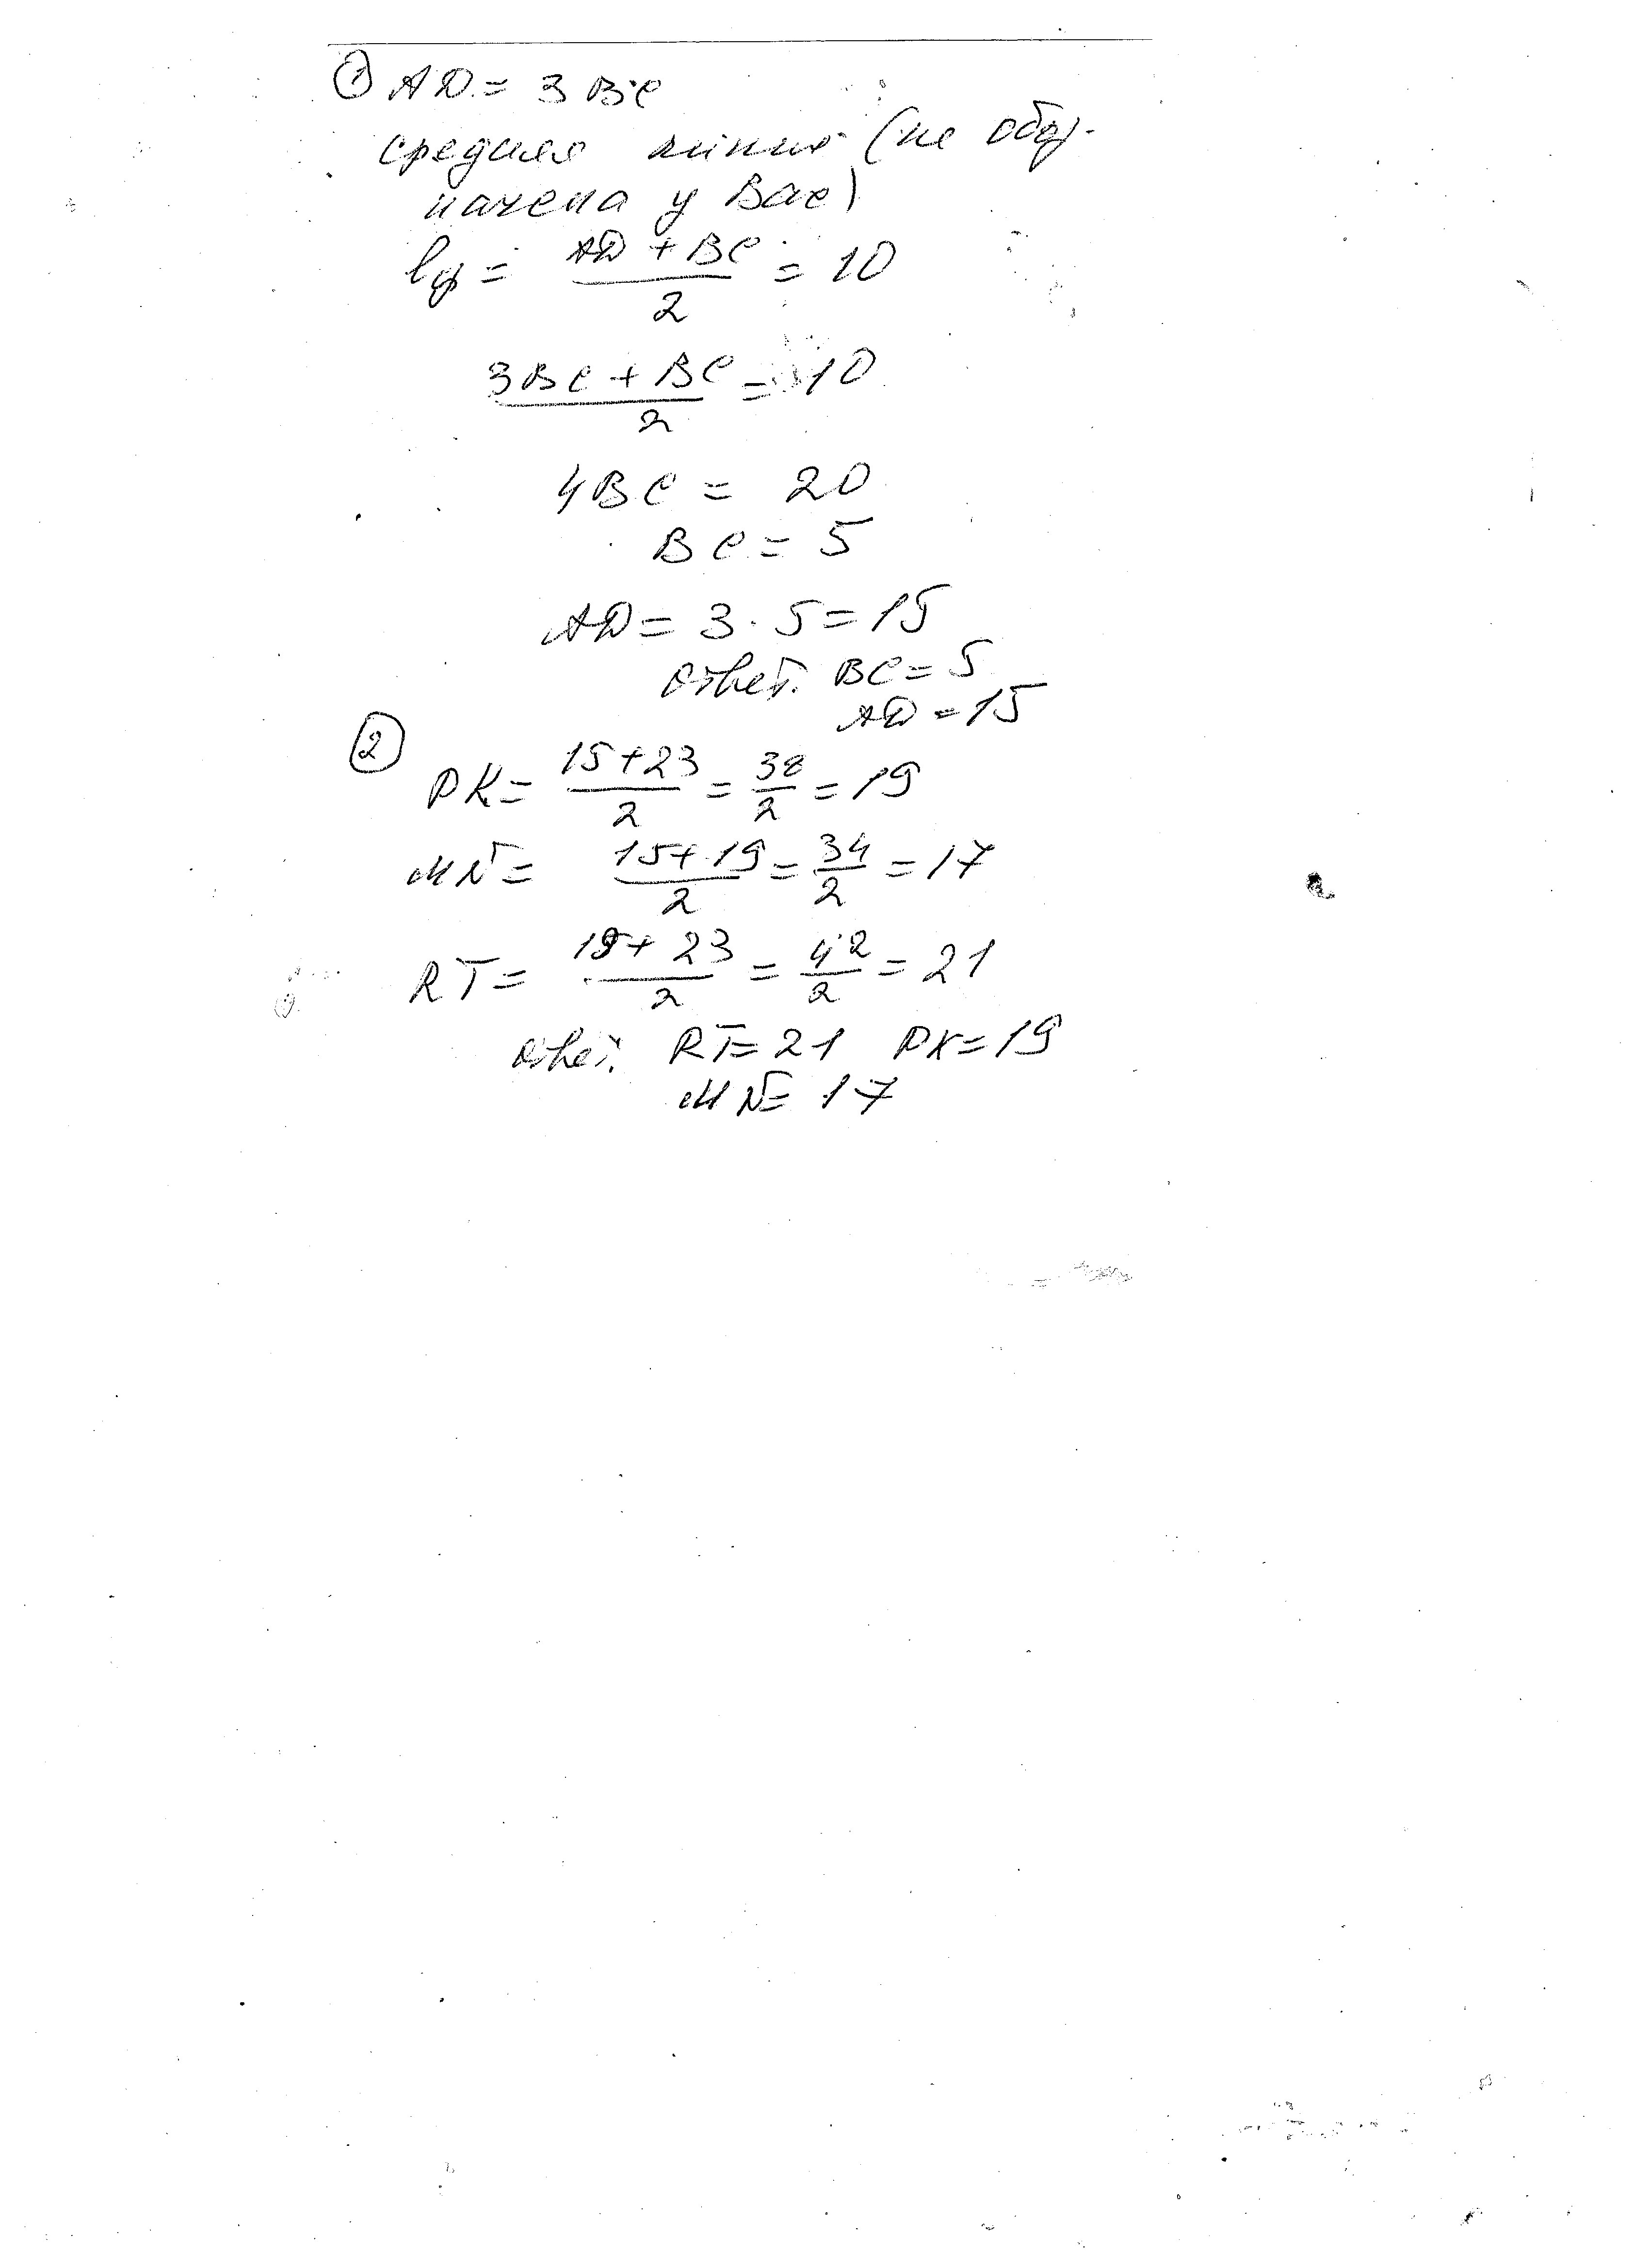 ① AD = 3BC
средняя линия (не обоз-
начена у Вас)
lф = (AD + BC)/2 = 10
(3BC + BC)/2 = 10
4BC = 20
BC = 5
AD = 3 · 5 = 15
Ответ: BC = 5
AD = 15
②
PK = (15+23)/2 = 38/2 = 19
MN = (15+19)/2 = 34/2 = 17
RT = (19+23)/2 = 42/2 = 21
Ответ: RT = 21 PK = 19
MN = 17